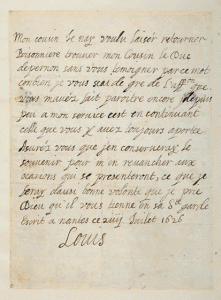 Mon cousin Ie nay voulu laisser retourner
trouver mon Cousin le Duc
depernon sans vous temoigner par ce mot
combien je vous scai de gre de l'aff.on que
vous mavez fait paroitre encore depuis
peu a mon service et en continuant
celle que vous y avez toujours aporté
Assurez vous que j'en conserveray le
souvenir pour m'en revancher aux
ocasions qui se presenteront, ce que je
feray daussi bonne volonté que je prie
Dieu qu'il vous tienne en sa S.te garde
Escrit a nantes ce Juillet 1626
Louis